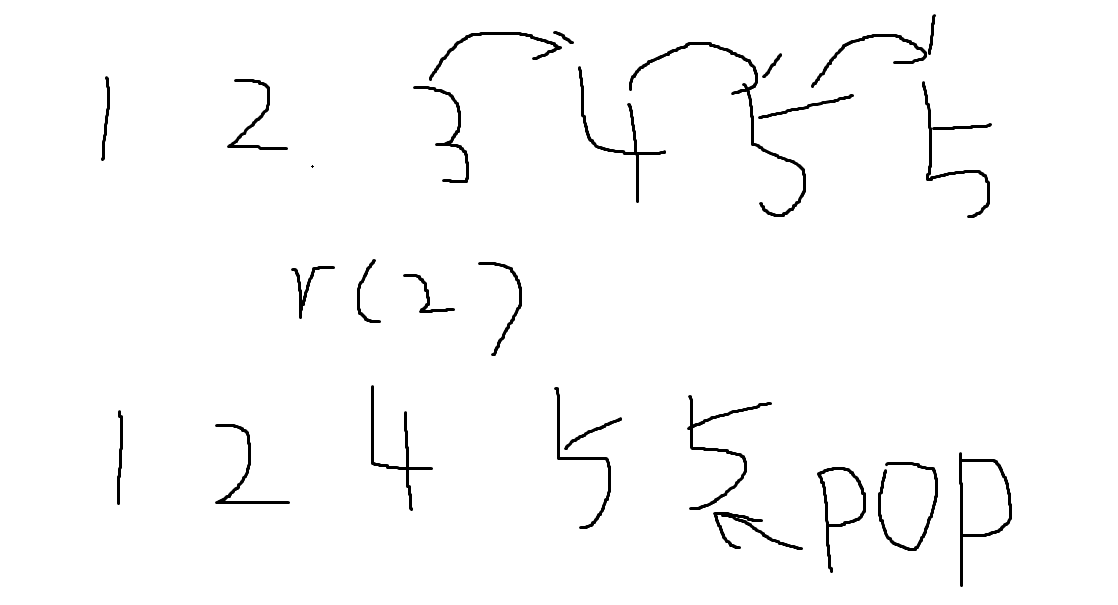 1 2 3 4 5 5
r(2)
1 2 4 5 5
pop